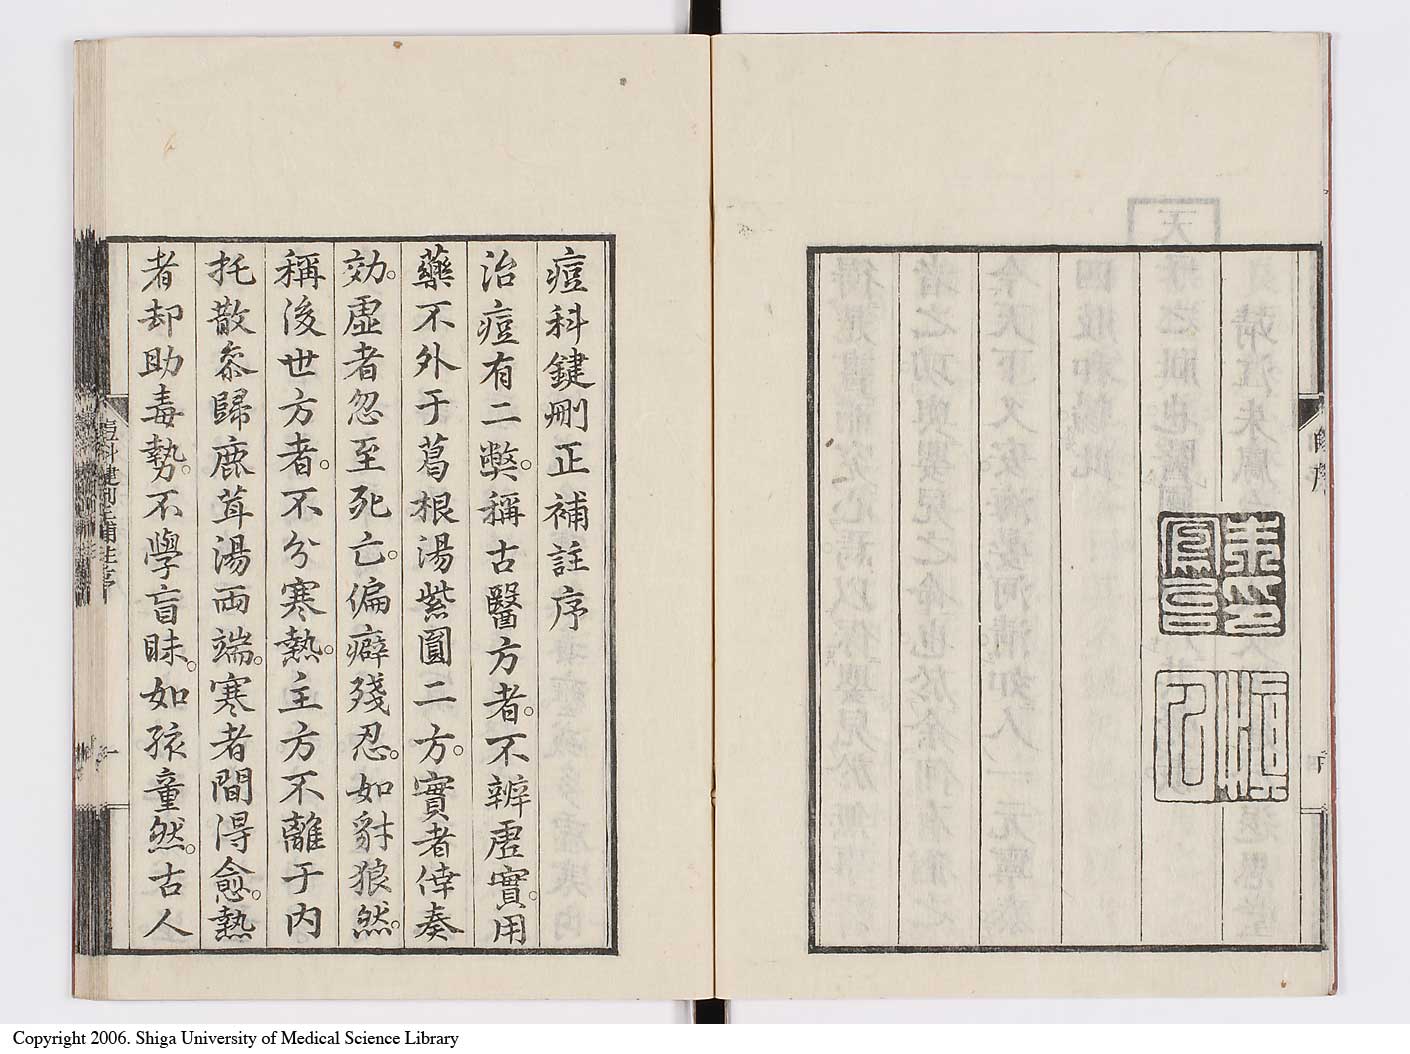 痘科鍵刪正補註序
治痘有二獘。稱古醫方者。不辨虛實。用
藥不外于葛根湯紫圓二方。實者倖奏
効。虛者忽至死亡。偏癖殘忍。如豺狼然。
稱後世方者。不分寒熱。主方不離于内
托散參歸鹿茸湯兩端。寒者間得愈。熱
者却助毒勢。不學盲昧。如孩童然。古人
Copyright 2006. Shiga University of Medical Science Library